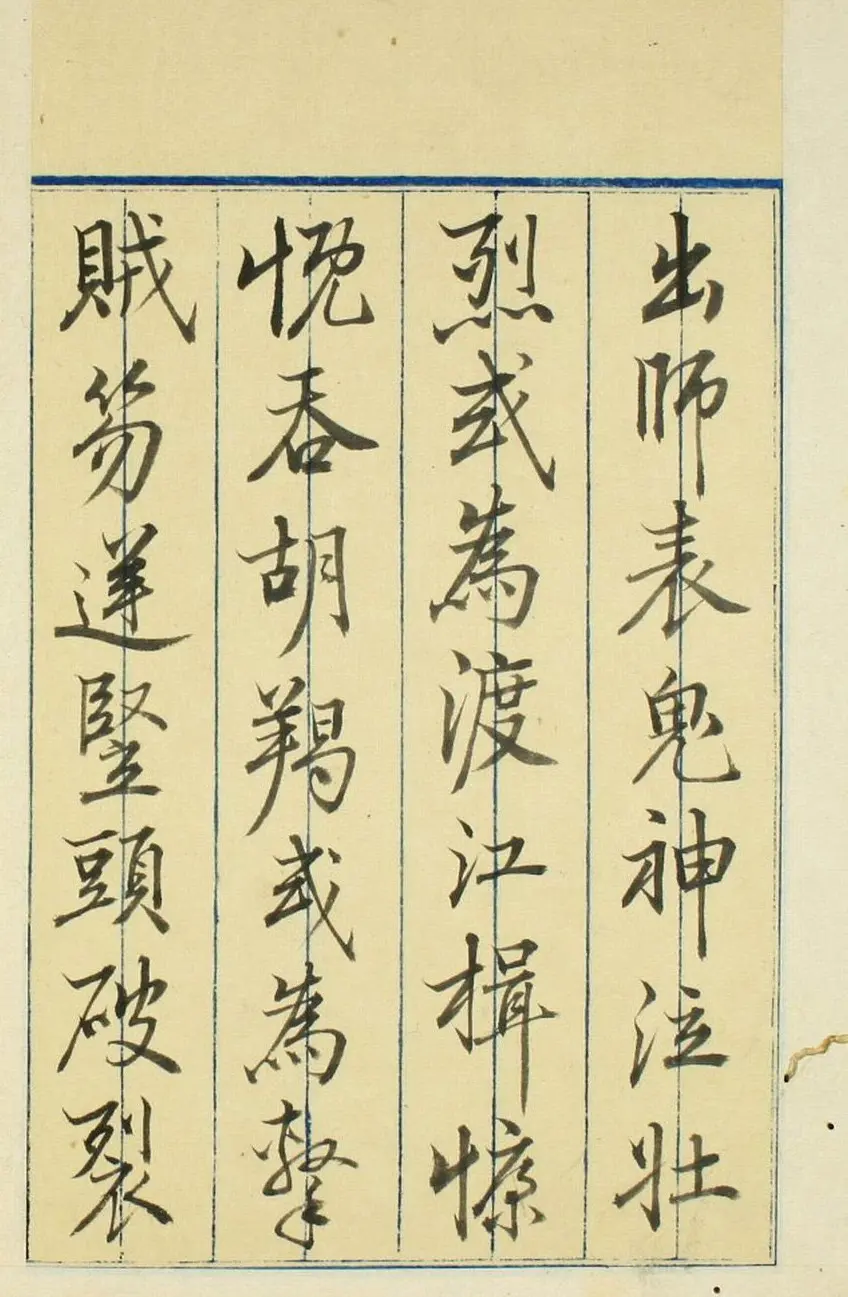 出師表鬼神泣壮
烈或為渡江楫慷
慨吞胡羯或為擊
賊笏逆豎頭破裂